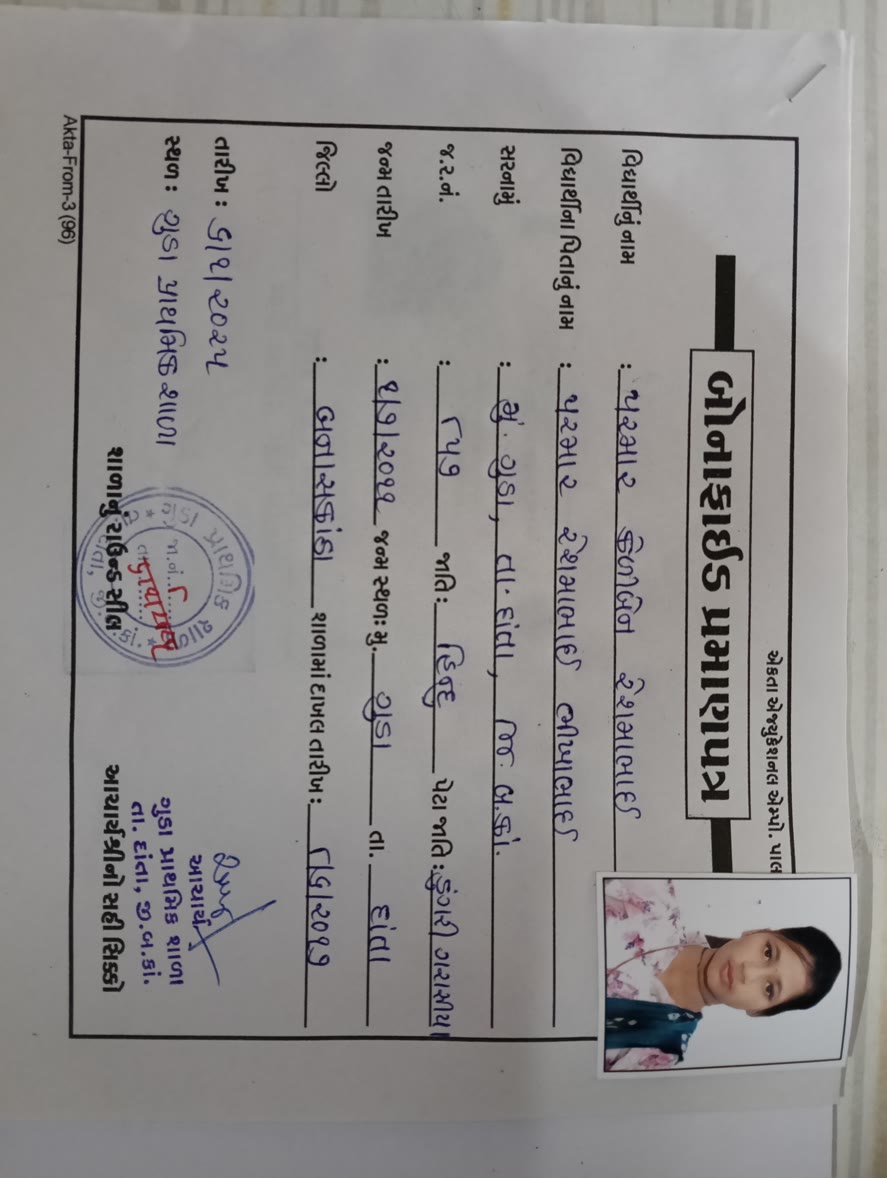 એકતા એજ્યુકેશનલ એમ્પો. પાલ
બોનાફાઈડ પ્રમાણપત્ર
વિદ્યાર્થીનું નામ : પરમાર રેશમાભાઈ
વિદ્યાર્થીના પિતાનું નામ : પરમાર રેશમાભાઈ ભીખાભાઈ
સરનામું : મું. ગુડા, તા. દાંતા, જિ બ.કાં.
જ.ર.નં. : જાતિ: હિન્દુ પેટા જાતિ: ડુંગરી ગરાસીયા
જન્મ તારીખ : જન્મ સ્થળ: મુ. ગુડા તા. દાંતા
જિલ્લો : બનાસકાંઠા શાળામાં દાખલ તારીખ:
તારીખ :
સ્થળ : ગુડા પ્રાથમિક શાળા
શાળાનું રાઉન્ડ સીલ
આચાર્ય
ગુડા પ્રાથમિક શાળા
તા. દાંતા, જી.બ.કાં.
આચાર્યશ્રીનો સહી સિક્કો
Akta-From-3 (96)